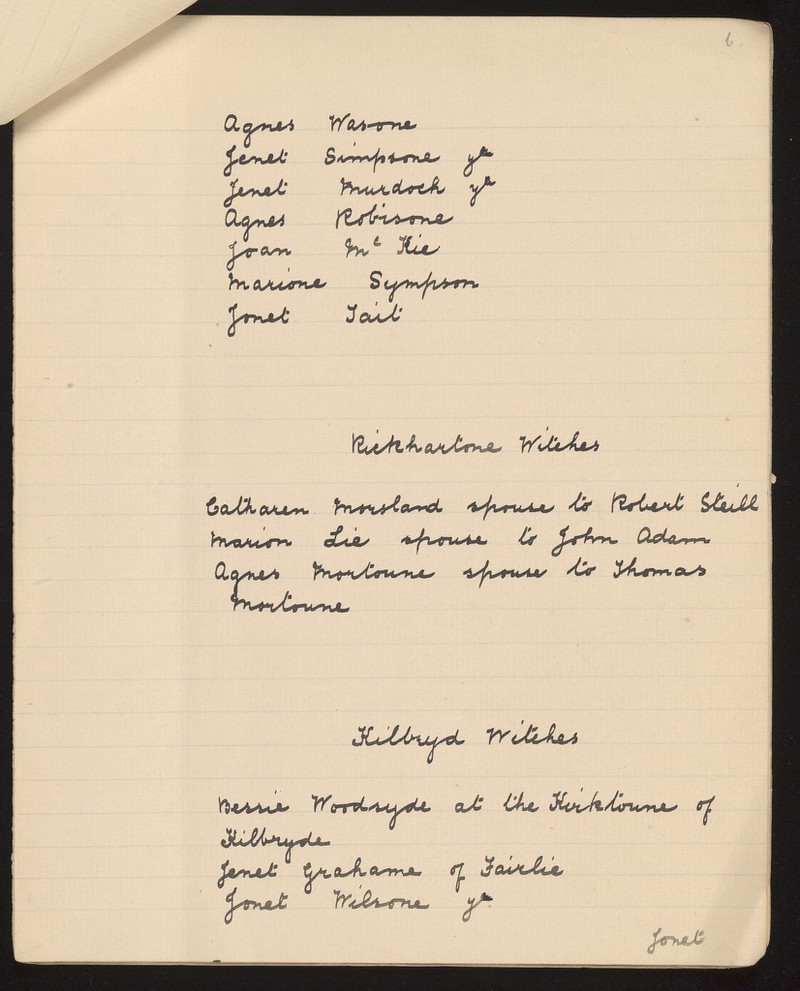 6.
Agnes Wasone
Jenet Simpsone yr
Jenet Murdock yr
Agnes Robisone
Joan Mc Kie
Marione Sympson
Jonet Tait
Rickhartone Witches
Catharen Morsland spouse to Robert Steill
Marion Lie spouse to John Adam
Agnes Mortoune spouse to Thomas
Mortoune
Kilbryd Witches
Bessie Woodsyde at the Kirktoune of
Kilbryde
Jenet Grahame of Fairlie
Jonet Wilsone yr
Jonet